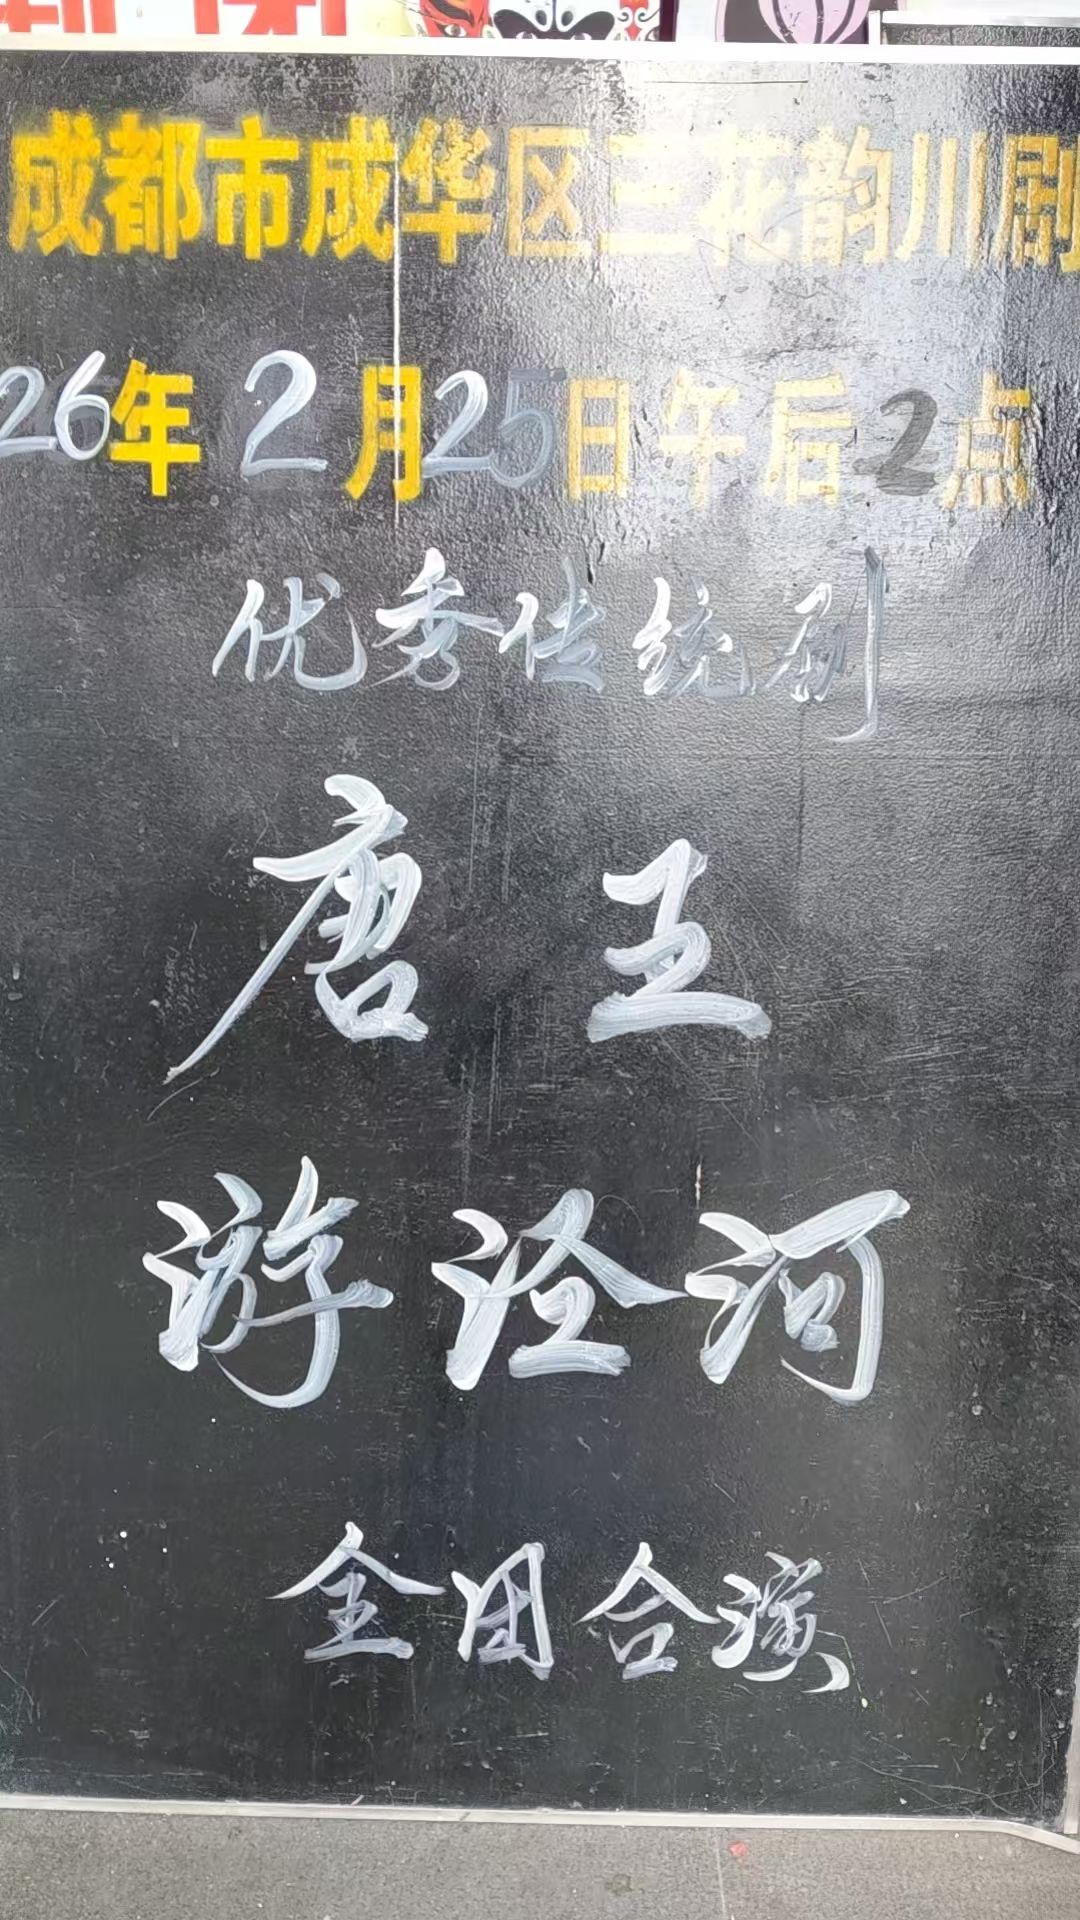 成都市成华区三花韵川剧
26年2月25日午后2点
优秀传统剧
唐王
游泾河
全团合演